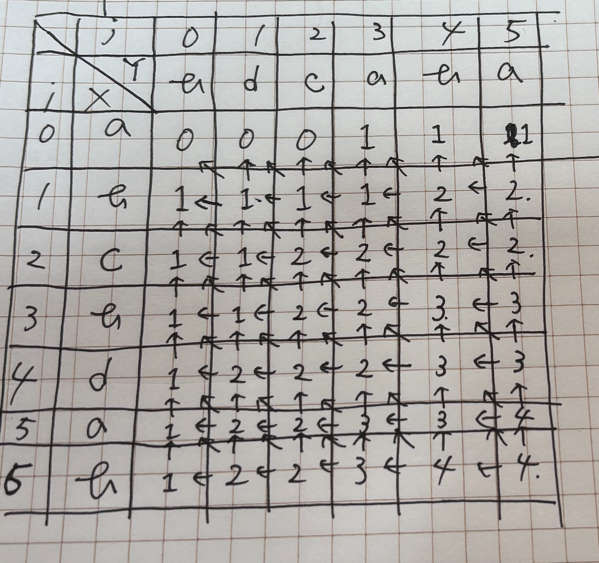 j 0 1 2 3 4 5
i X Y b d c a b a
0 a 0 0 0 1 1 1
1 b 1 ← 1 ← 1 ← 1 ← 2 ← 2.
2 c 1 ← 1 ← 2 ← 2 ← 2 ← 2.
3 b 1 ← 1 ← 2 ← 2 ← 3 ← 3
4 d 1 ← 2 ← 2 ← 2 ← 3 ← 3
5 a 1 ← 2 ← 2 ← 3 ← 3 ← 4
6 b 1 ← 2 ← 2 ← 3 ← 4 ← 4.